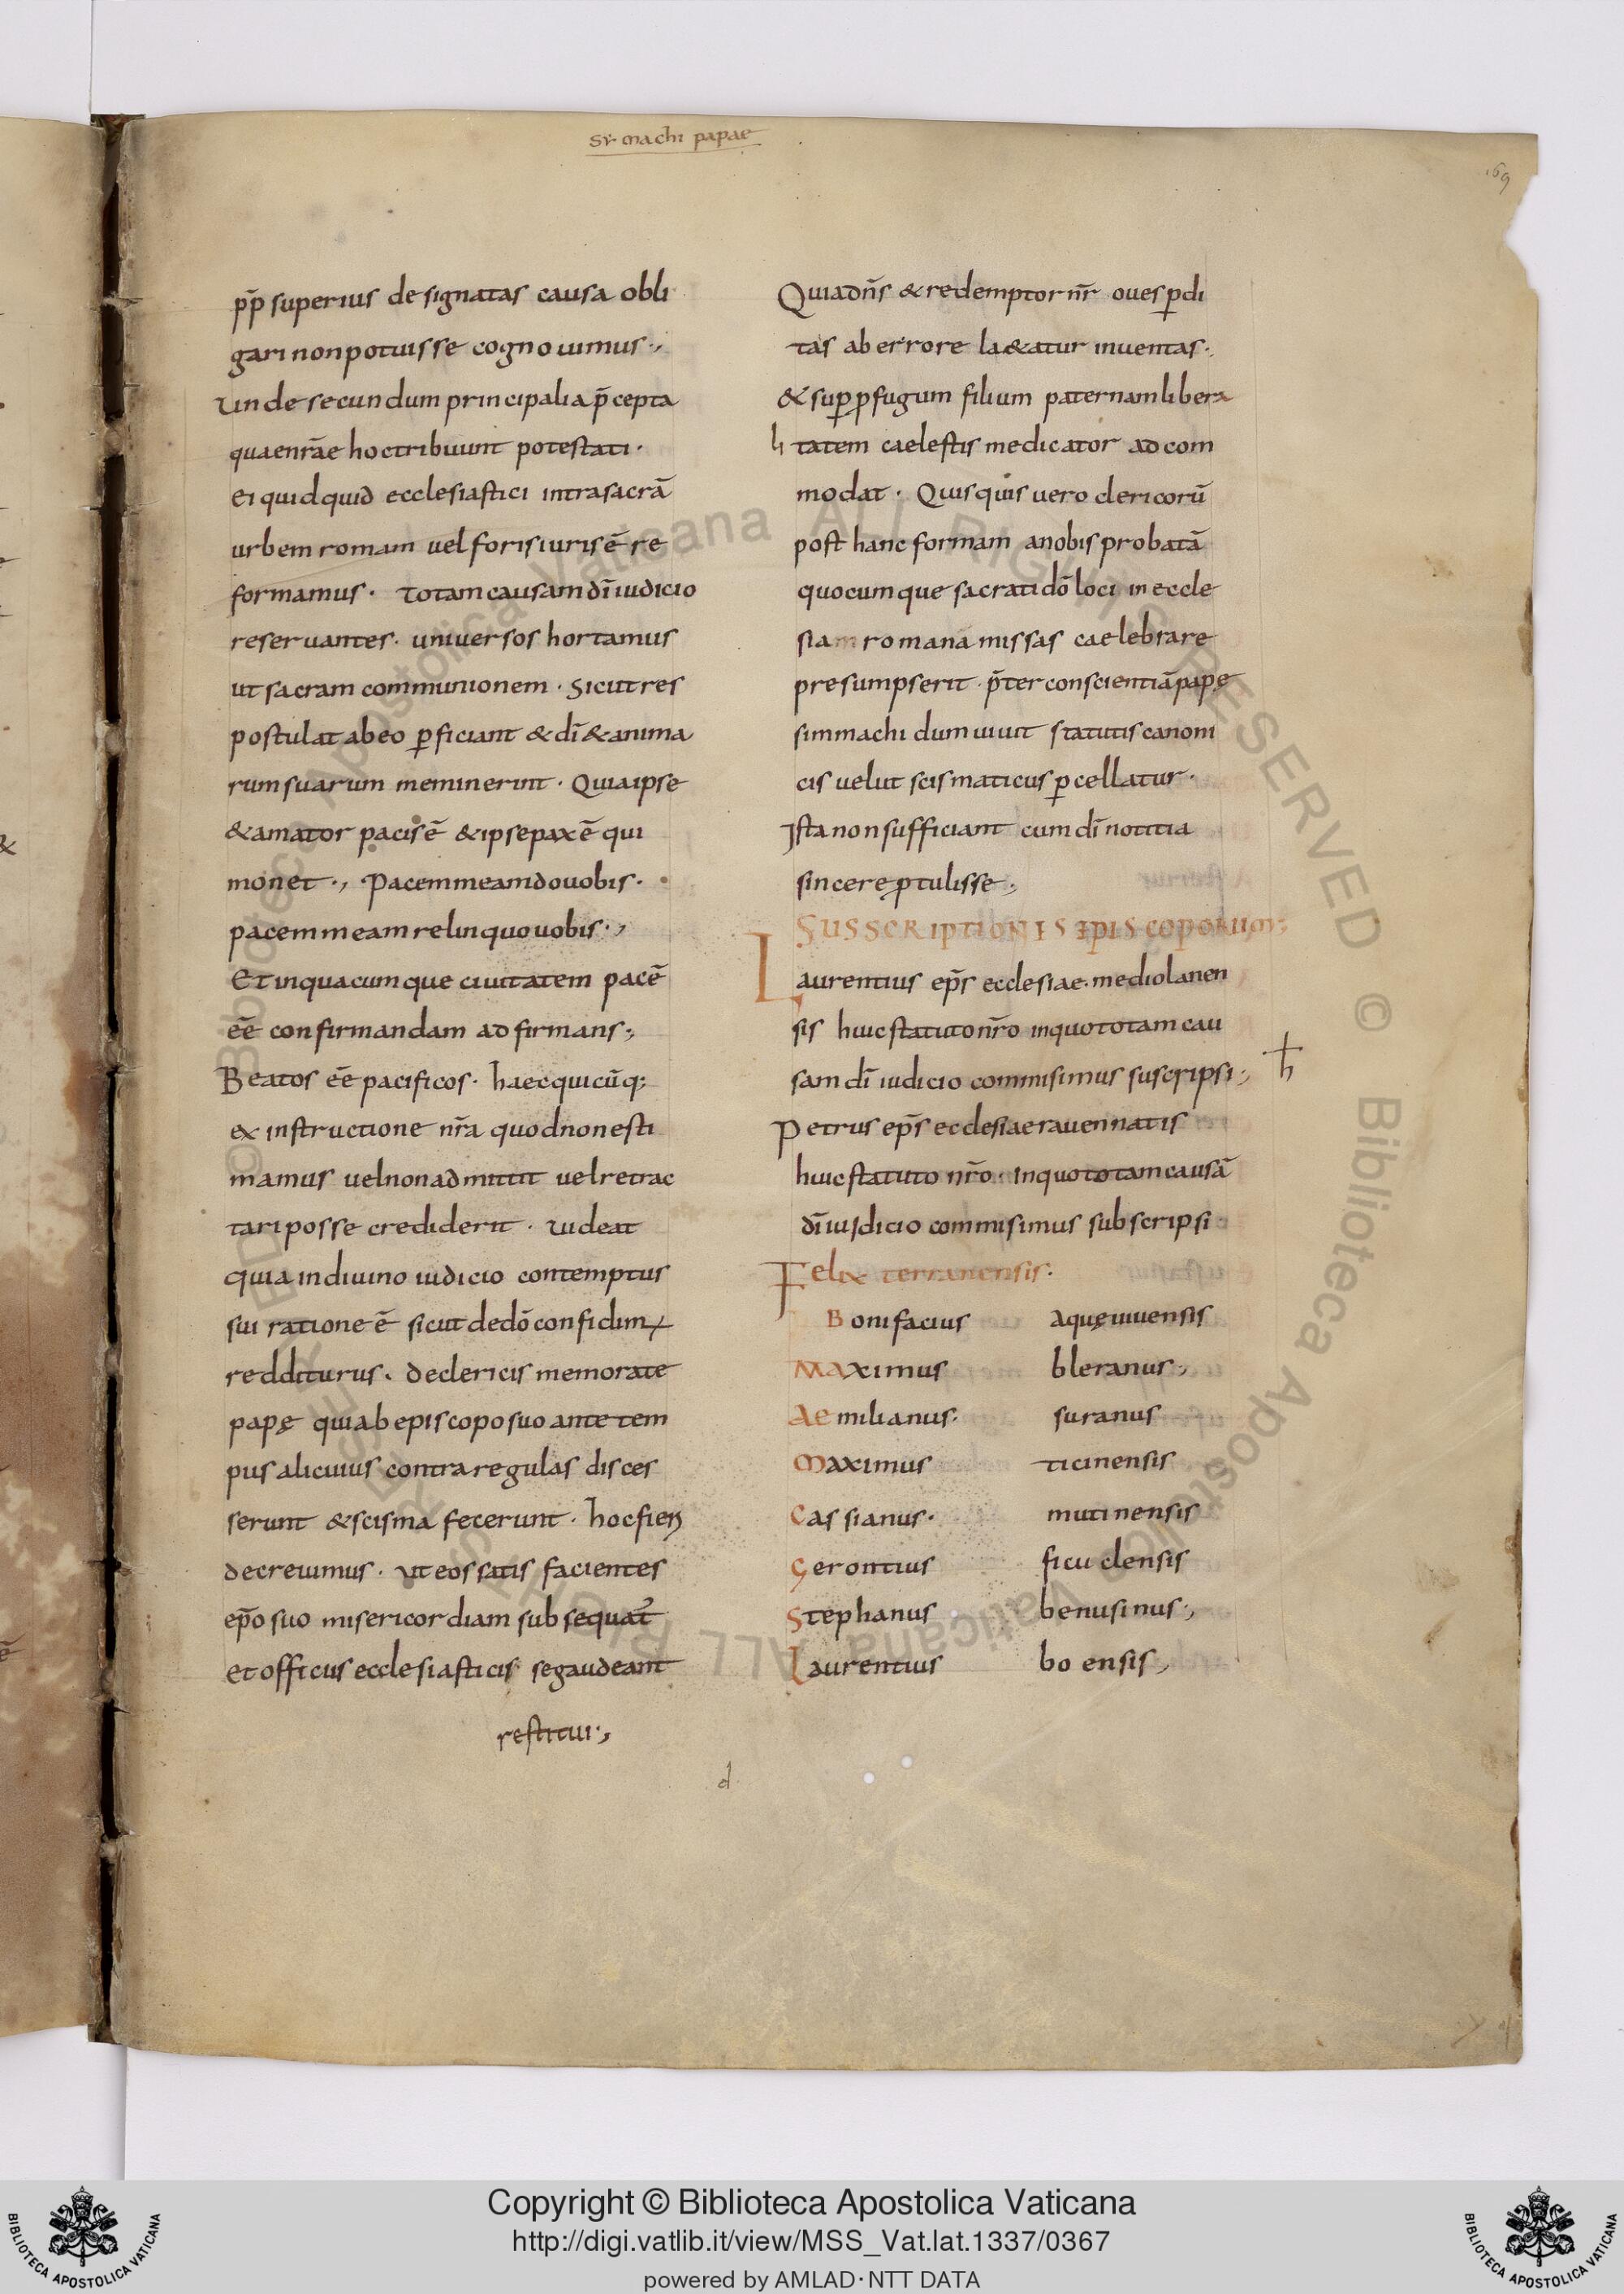 Symachi papae
169
pp̄ superius designatas causa obli
gari non potuisse cognouimus·,
Unde secundum principalia p̄cepta
quae nr̄ae hoc tribuunt potestati·
ei quidquid ecclesiastici intra sacrā
urbem romam uel foris iuris ē re
formamus· Totam causam dī iudicio
reseruantes· uniuersos hortamus
ut sacram communionem· Sicut res
postulat ab eo ꝑficiant & dī & anima
rum suarum meminerint· Quia ipse
& amator pacis ē & ipse pax ē qui
monet·, Pacem meam do uobis·
pacem meam relinquo uobis·,
Et in quacumque ciuitatem pacē
eē confirmandam adfirmans;
Beatos eē pacificos· haec quicūq;
ex instructione nr̄a quod non esti
mamus uel non admittit uel retrac
tari posse crediderit· uideat
quia in diuino iudicio contemptus
sui ratione ē sicut de dō confidim
redditurus· de clericis memorate
papę qui ab episcopo suo ante tem
pus alicuius contra regulas disces
serunt & scisma fecerunt· hoc fieri
decreuimus· ut eos satis facientes
ep̄o suo misericordiam subsequat̄
et officiis ecclesiasticis se gaudeant
restitui·,
d
Quia dn̄s & redemptor nr̄ oues ꝑdi
tas ab errore la&atur inuentas·,
& suꝑ ꝓfugum filium paternam libera
li tatem caelestis medicator ad com
modat· Quisquis uero clericorū
post hanc formam a nobis probatā
quocumque sacrati dō loci in eccle
siam romana missas caelebrare
presumpserit· p̄ter conscientiā papę
simmachi dum uiuit statutis canoni
cis uelut scismaticus ꝑcellatur·
Ista non sufficiant cum dī notitia
sincere ꝓtulisse,
SUSSCRIPTIONIS EPISCOPORUM;
Laurentius ep̄s ecclesiae· mediolanen
sis huic statuto nr̄o in quo totam cau
sam dī iudicio commisimus suscripsi;
Petrus ep̄s ecclesiae rauennatis
huic statuto nr̄o· in quo totam causā
dī iudicio commisimus subscripsi
Felix terranensis·
Bonifacius aquęuiuensis
Maximus bleranus,
Aemilianus· suranus
Maximus ticinensis
Cassianus· mutinensis
Gerontius ficuclensis
Stephanus benusinus,
Laurentius bo ensis,
Copyright © Biblioteca Apostolica Vaticana
http://digi.vatlib.it/view/MSS_Vat.lat.1337/0367
powered by AMLAD·NTT DATA
BIBLIOTECA APOSTOLICA VATICANA
BIBLIOTECA APOSTOLICA VATICANA